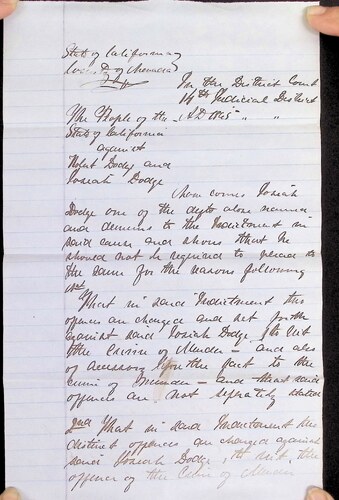 State of California
County of
In the District Court
14th Judicial District
The People of the
State of California
against
Robert Dodge and
Josiah Dodge
Now comes Josiah
Dodge one of the defts above named
and demurs to the Indictment in
said cause and shows that he
should not be required to plead to
the same for the reasons following
1st
That in said Indictment two
offences are charged and set forth
against said Josiah Dodge, to wit
the Crime of Murder — and also
of accessory after the fact to the
crime of Murder — and that said
offences are not separately stated
2nd That in said Indictment two
distinct offences are charged against
said Josiah Dodge, to wit, the
offence of the Crime of Murder